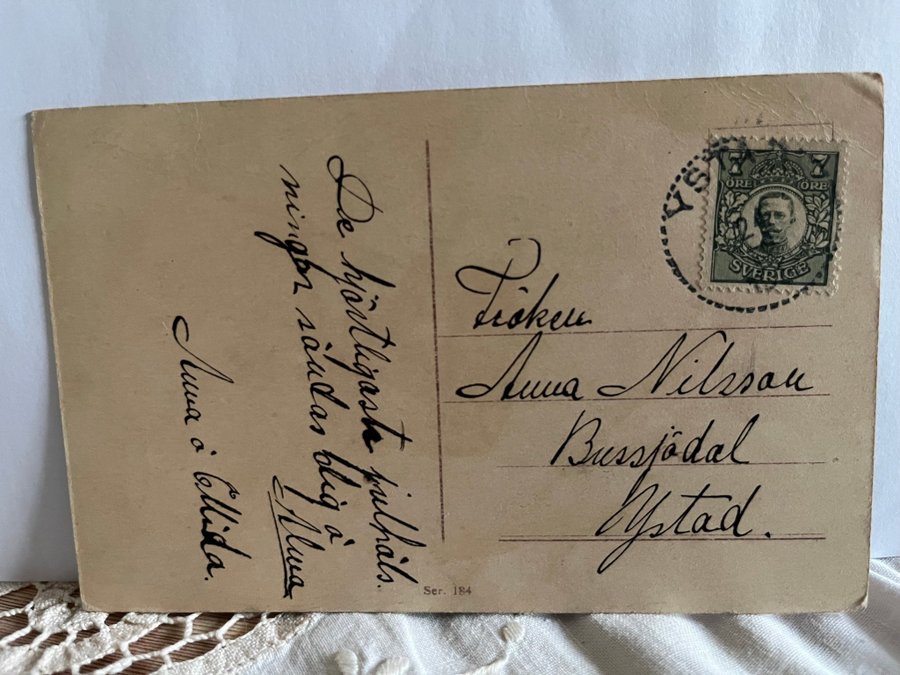 De hjärtligaste julhäls.
ningar sändas dig o
Alma
Anna o Ellida.
YSTA
7 7
ÖRE ÖRE
SVERIGE
Fröken
Anna Nilsson
Bussjödal
Ystad.
Ser. 184